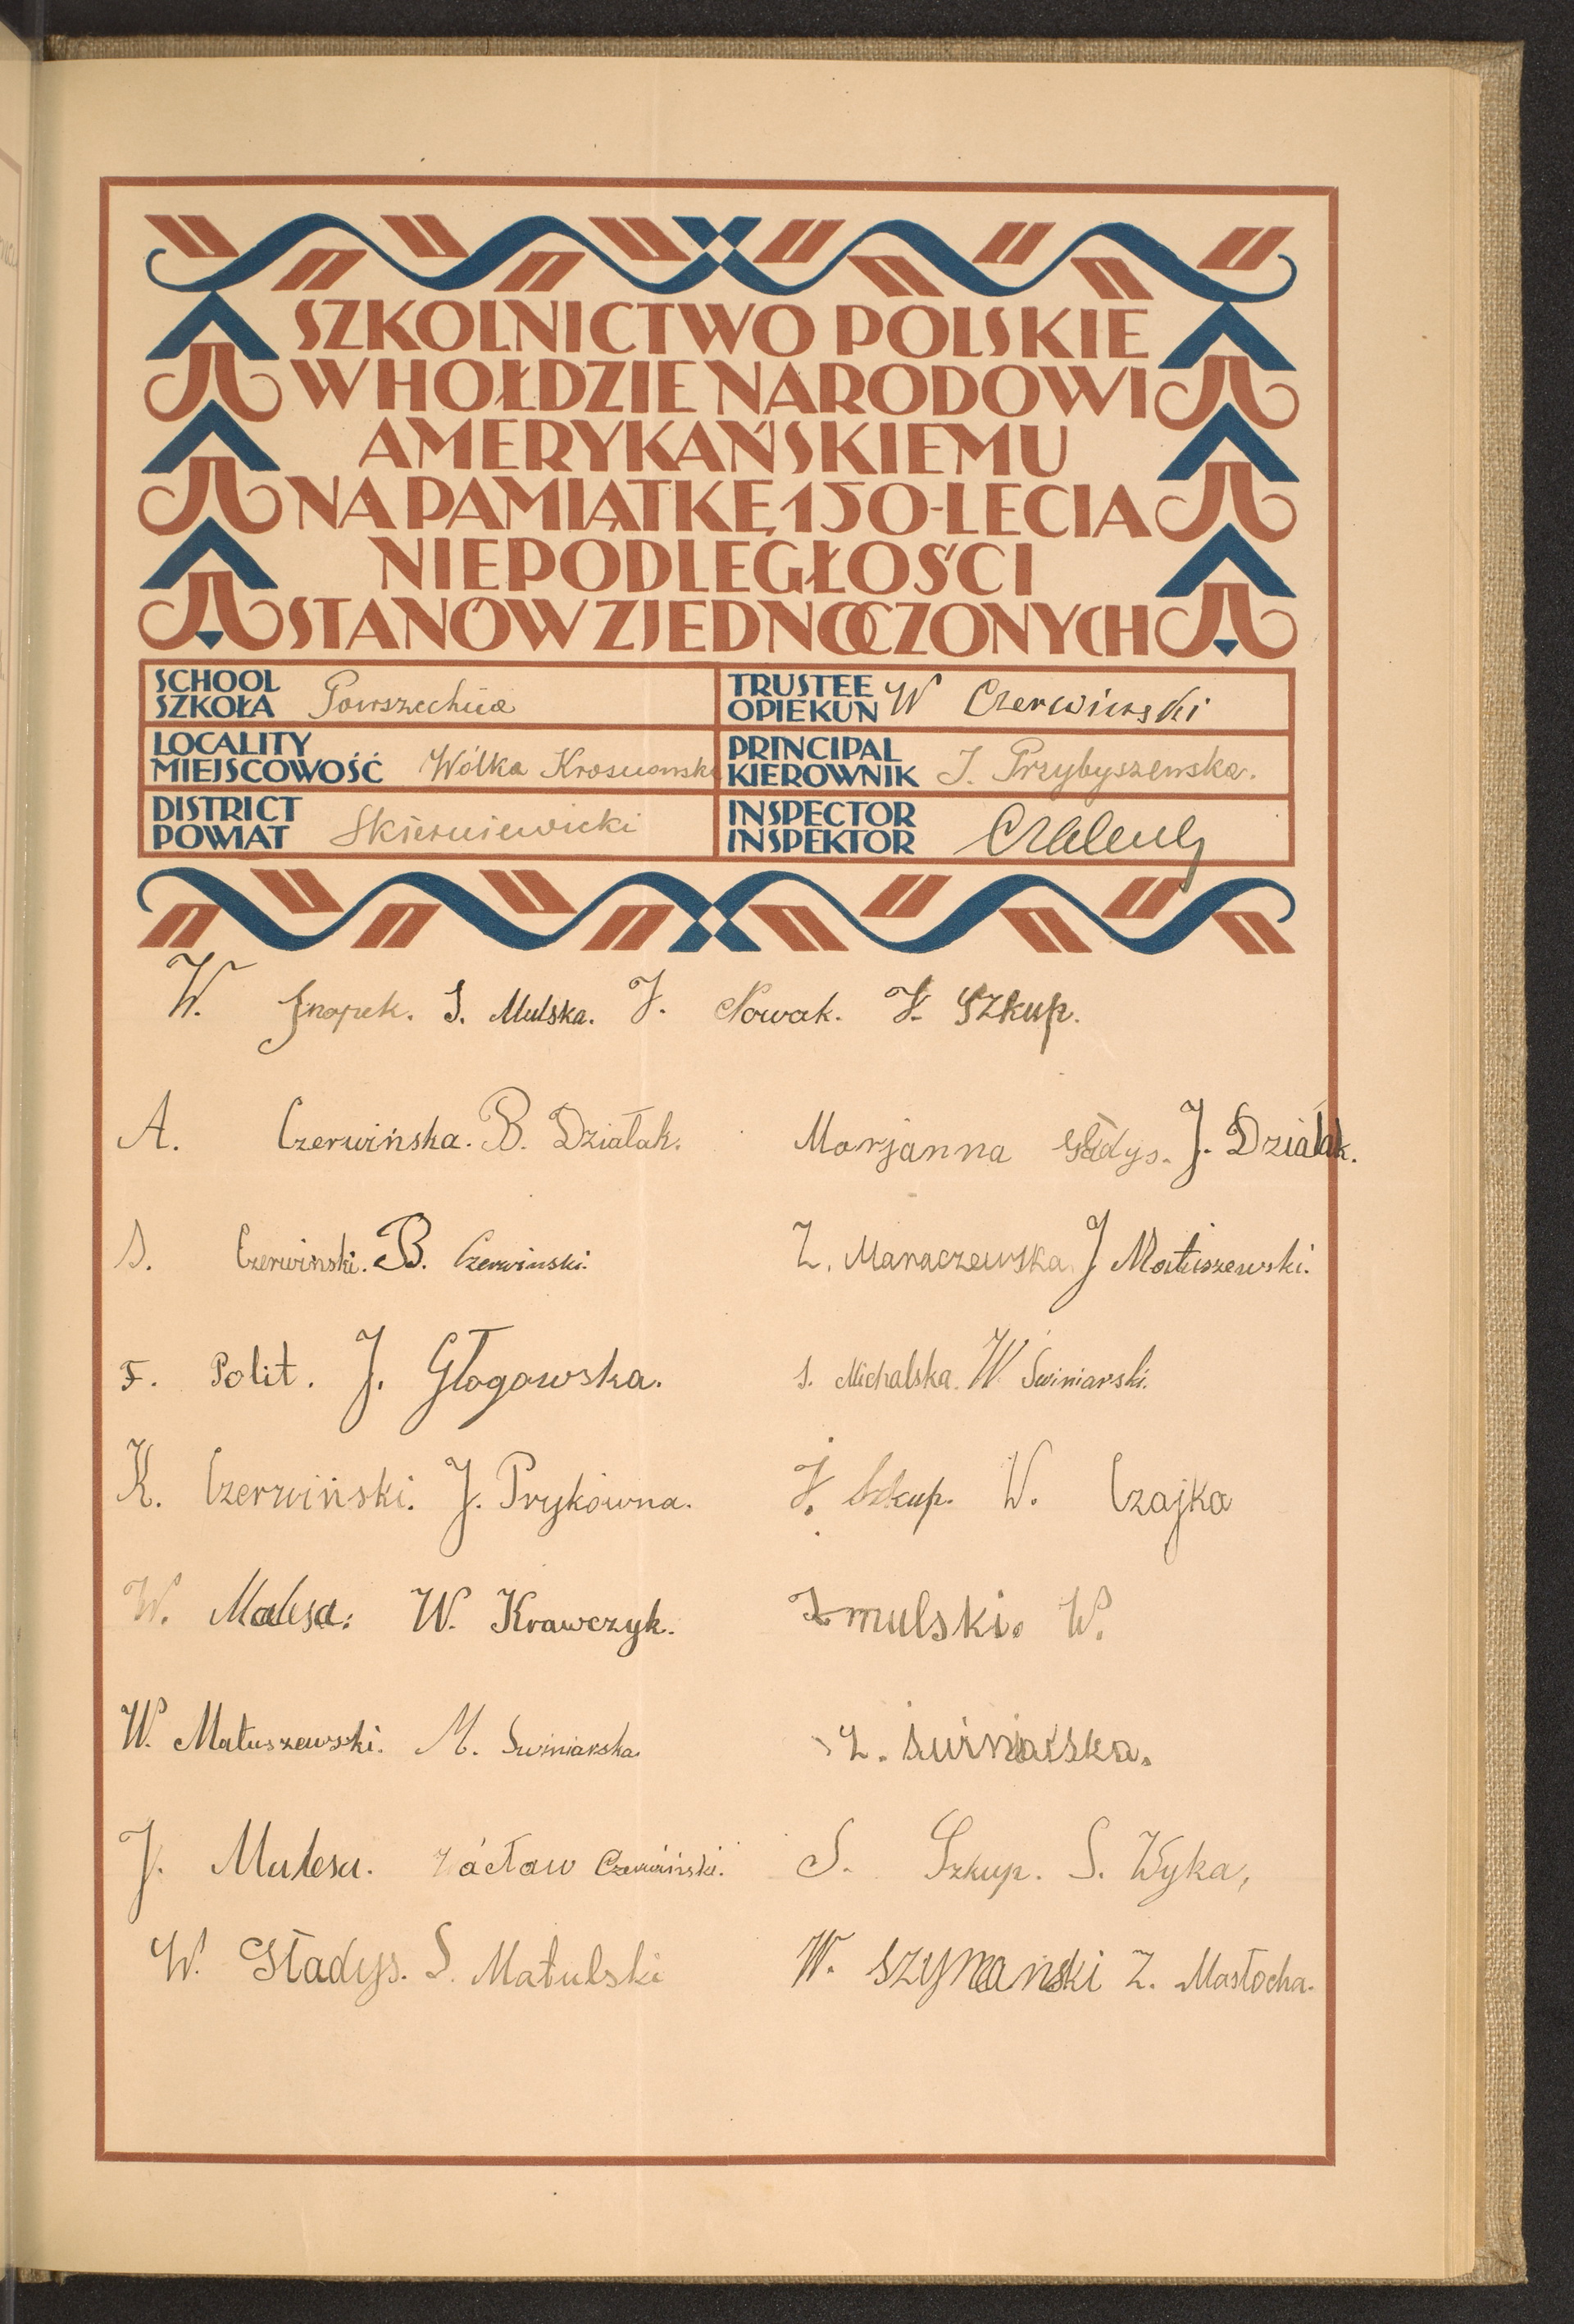 SZKOLNICTWO POLSKIE
W HOŁDZIE NARODOWI
AMERYKAŃSKIEMU
NA PAMIĄTKĘ 150-LECIA
NIEPODLEGŁOŚCI
STANÓW ZJEDNOCZONYCH
SCHOOL
SZKOŁA Powszechna
TRUSTEE
OPIEKUN W Czerwiński
LOCALITY
MIEJSCOWOŚĆ Wólka Krosnowska
PRINCIPAL
KIEROWNIK J. Przybyszewska.
DISTRICT
POWIAT Skierniewicki
INSPECTOR
INSPEKTOR
W. Gnapek. S. Mulska. J. Nowak. J. Szkup.
A. Czerwińska. B. Działak. Marjanna Gładys. J. Działak.
S. Czerwinski. B. Czerwinski. Z. Maraczewska. J Matuszewski.
F. Polit. J. Głogowska. S. Michalska. W Swiniarski.
K. Czerwiński. J. Prykówna. J. Szkup. W. Czajka
W. Malesa. W. Krawczyk. mulski. W.
W. Matuszewski. M. Swiniarska Z. świniarska.
J. Malesa. Wácław Czerwiński. S. Szkup. S. Wyka,
W. Gładys. S. Matulski W. Szymanski Z. Masłocha.